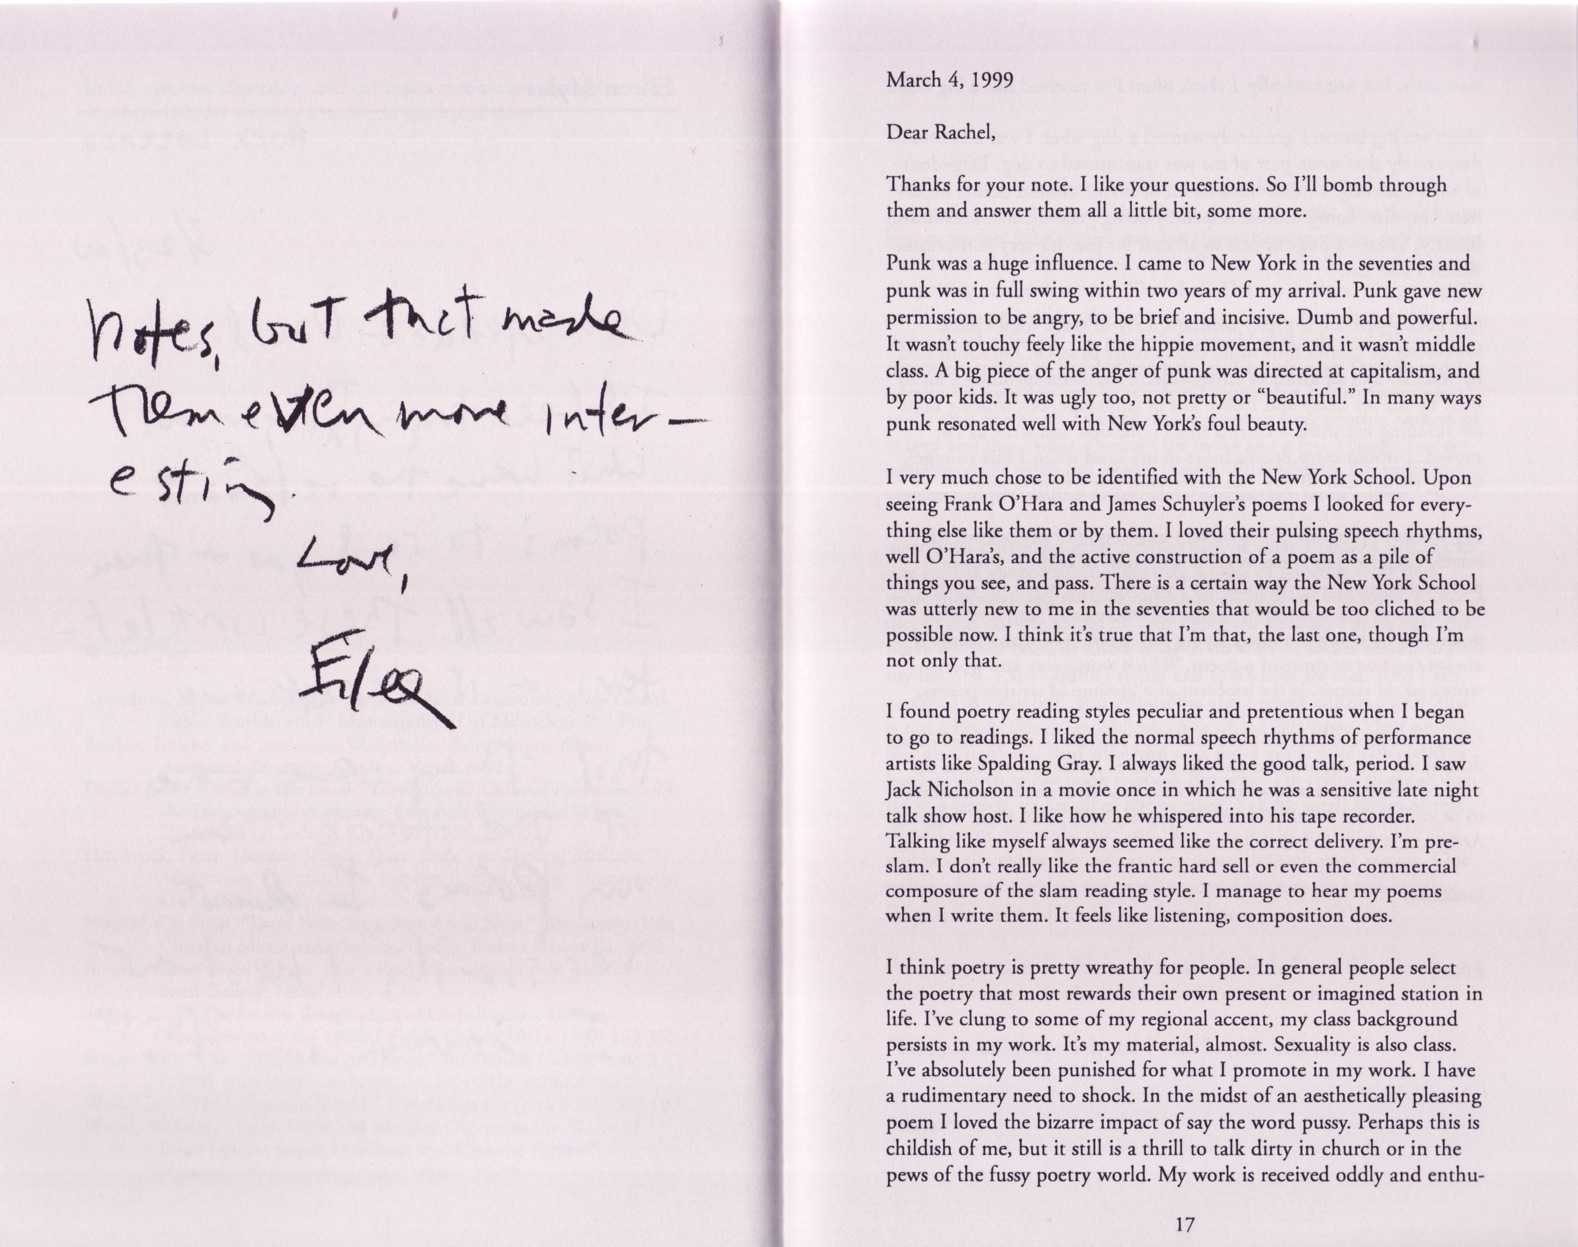 notes, but that made
them even more inter-
esting.
Love,
March 4, 1999
Dear Rachel,
Thanks for your note. I like your questions. So I’ll bomb through
them and answer them all a little bit, some more.
Punk was a huge influence. I came to New York in the seventies and
punk was in full swing within two years of my arrival. Punk gave new
permission to be angry, to be brief and incisive. Dumb and powerful.
It wasn’t touchy feely like the hippie movement, and it wasn’t middle
class. A big piece of the anger of punk was directed at capitalism, and
by poor kids. It was ugly too, not pretty or “beautiful.” In many ways
punk resonated well with New York’s foul beauty.
I very much chose to be identified with the New York School. Upon
seeing Frank O’Hara and James Schuyler’s poems I looked for every-
thing else like them or by them. I loved their pulsing speech rhythms,
well O’Hara’s, and the active construction of a poem as a pile of
things you see, and pass. There is a certain way the New York School
was utterly new to me in the seventies that would be too cliched to be
possible now. I think it’s true that I’m that, the last one, though I’m
not only that.
I found poetry reading styles peculiar and pretentious when I began
to go to readings. I liked the normal speech rhythms of performance
artists like Spalding Gray. I always liked the good talk, period. I saw
Jack Nicholson in a movie once in which he was a sensitive late night
talk show host. I like how he whispered into his tape recorder.
Talking like myself always seemed like the correct delivery. I’m pre-
slam. I don’t really like the frantic hard sell or even the commercial
composure of the slam reading style. I manage to hear my poems
when I write them. It feels like listening, composition does.
I think poetry is pretty wreathy for people. In general people select
the poetry that most rewards their own present or imagined station in
life. I’ve clung to some of my regional accent, my class background
persists in my work. It’s my material, almost. Sexuality is also class.
I’ve absolutely been punished for what I promote in my work. I have
a rudimentary need to shock. In the midst of an aesthetically pleasing
poem I loved the bizarre impact of say the word pussy. Perhaps this is
childish of me, but it still is a thrill to talk dirty in church or in the
pews of the fussy poetry world. My work is received oddly and enthu-
17